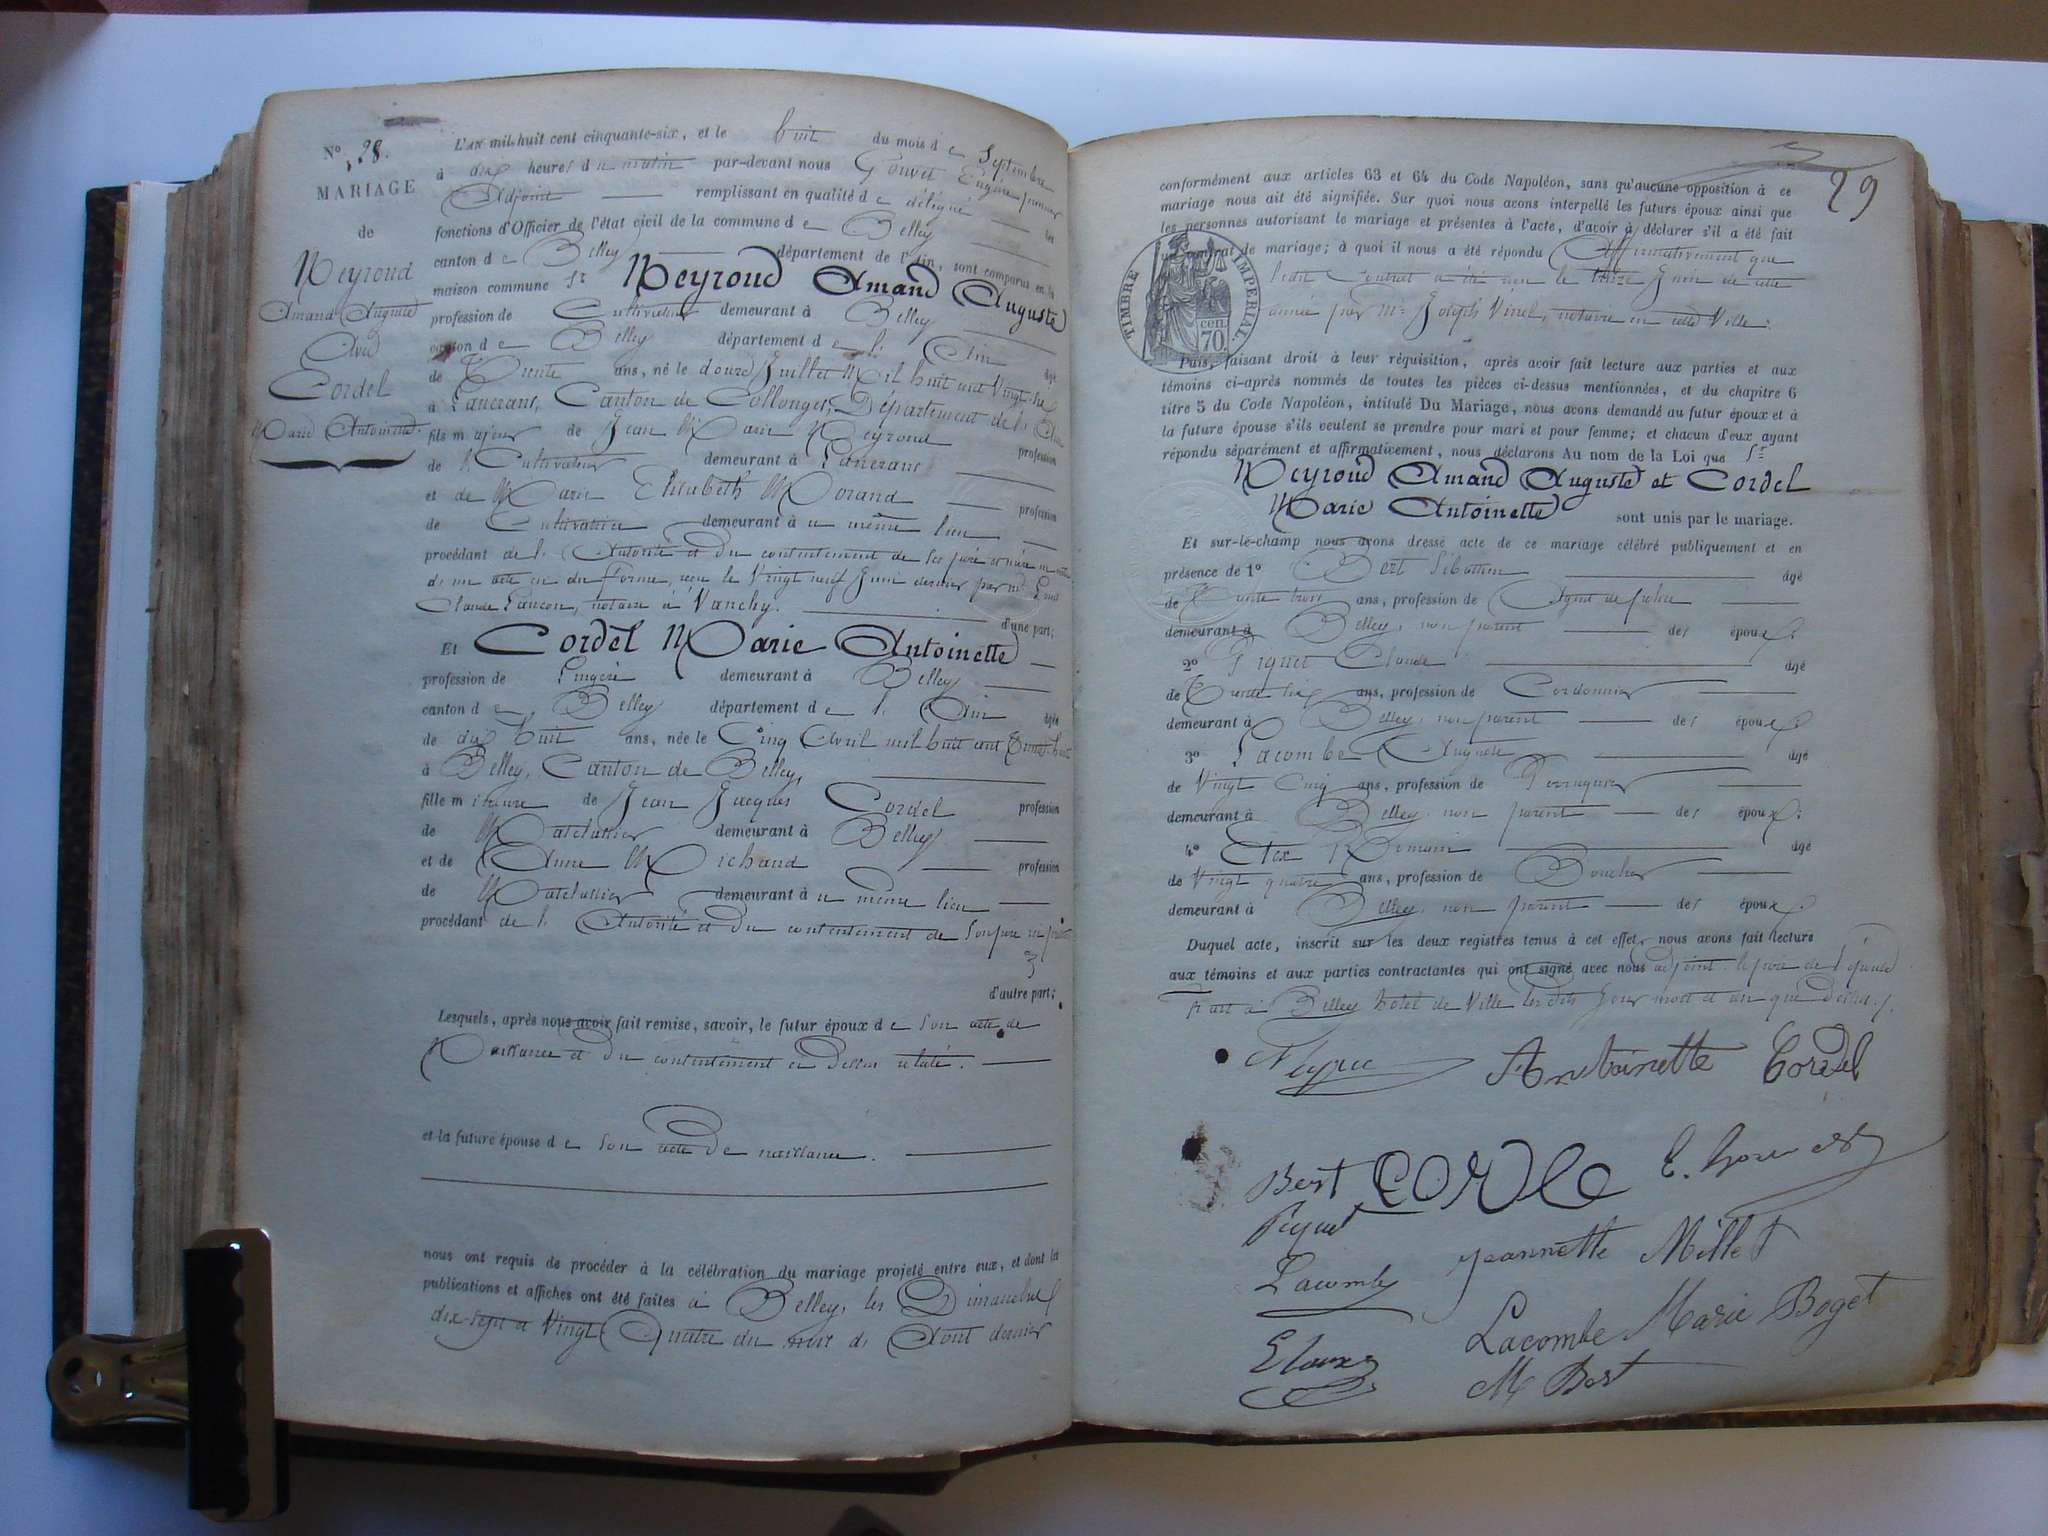 N° 28.
MARIAGE
de
Neyroud
Amand Auguste
Avec
Cordel
Marie Antoinette
L'AN mil huit cent cinquante-six, et le huit du mois de Septembre
à dix heures du matin par-devant nous Gouvet Eugène premier
Adjoint remplissant en qualité de délégué les
fonctions d'Officier de l'état civil de la commune de Belley
canton de Belley département de l'Ain, sont comparus en la
maison commune Sr Neyroud Amand Auguste
profession de Cultivateur demeurant à Belley
canton de Belley département de l'Ain âgé
de Trente ans, né le douze Juillet Mil huit cent Vingt six
à Lancrans, Canton de Collonges, Département de l'Ain
fils majeur de Jean Marie Neyroud profession
de Cultivateur demeurant à Lancrans
et de Marie Elisabeth Morand profession
de Cultivatrice demeurant à u même lieu
procédant de l'Autorité et du contentement de ses père et mère
de un acte en due forme, reçu le Vingt neuf Juin dernier par Me
Claude Lançon, notaire à Vanchy. d'une part;
Et Cordel Marie Antoinette
profession de Lingère demeurant à Belley
canton de Belley département de l'Ain âgée
de dix huit ans, née le Cinq Avril mil huit cent Trente huit
à Belley, Canton de Belley,
fille mineure de Jean Jacques Cordel profession
de Matelassier demeurant à Belley
et de Anne Michaud profession
de Matelassier demeurant à u même lieu
procédant de l'Autorité et du contentement de son père
d'autre part;
Lesquels, après nous avoir fait remise, savoir, le futur époux de son acte de
Naissance et du contentement ci dessus relaté.
et la future épouse de son acte de naissance.
nous ont requis de procéder à la célébration du mariage projeté entre eux, et dont les
publications et affiches ont été faites à Belley, les Dimanches
dix-sept et Vingt Quatre du mois d'Août dernier
29
conformément aux articles 63 et 64 du Code Napoléon, sans qu'aucune opposition à ce
mariage nous ait été signifiée. Sur quoi nous avons interpellé les futurs époux ainsi que
les personnes autorisant le mariage et présentes à l'acte, d'avoir à déclarer s'il a été fait
un contrat de mariage; à quoi il nous a été répondu Affirmativement que
ledit Contrat a été reçu le treize Juin de cette
année par Me Joseph Vinel, notaire en cette Ville.
TIMBRE IMPERIAL
70 cen.
Puis, faisant droit à leur réquisition, après avoir fait lecture aux parties et aux
témoins ci-après nommés de toutes les pièces ci-dessus mentionnées, et du chapitre 6
titre 5 du Code Napoléon, intitulé Du Mariage, nous avons demandé au futur époux et à
la future épouse s'ils veulent se prendre pour mari et pour femme; et chacun d'eux ayant
répondu séparément et affirmativement, nous déclarons Au nom de la Loi que Sr
Neyroud Amand Auguste et Cordel
Marie Antoinette sont unis par le mariage.
Et sur-le-champ nous avons dressé acte de ce mariage célébré publiquement et en
présence de 1° Bert âgé
de Trente trois ans, profession de Agent de police
demeurant à Belley, non parent des époux.
2° Piquet Claude âgé
de Trente six ans, profession de Cordonnier
demeurant à Belley, non parent des époux.
3° Lacombe Auguste âgé
de Vingt Cinq ans, profession de Perruquier
demeurant à Belley non parent des époux.
4° Romain âgé
de Vingt quatre ans, profession de Boucher
demeurant à Belley, non parent des époux.
Duquel acte, inscrit sur les deux registres tenus à cet effet, nous avons fait lecture
aux témoins et aux parties contractantes qui ont signé avec nous adjoint le père de l'épouse
Fait à Belley hôtel de Ville lesdits Jour mois et an que dessus.
Antoinette Cordel
Bert
Piquet
Lacombe
Jeannette Millet
Lacombe Marie Boget
M Bert